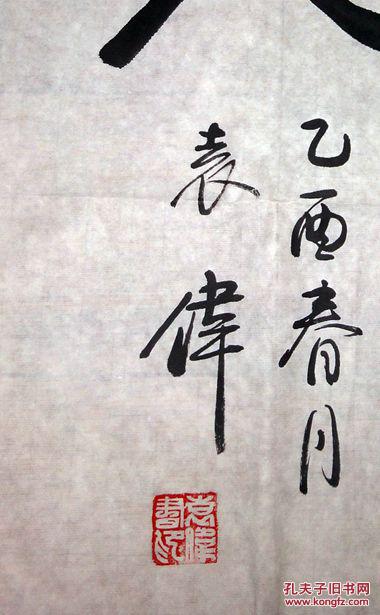 乙酉春月
袁偉
袁偉書印
孔夫子旧书网
www.kongfz.com